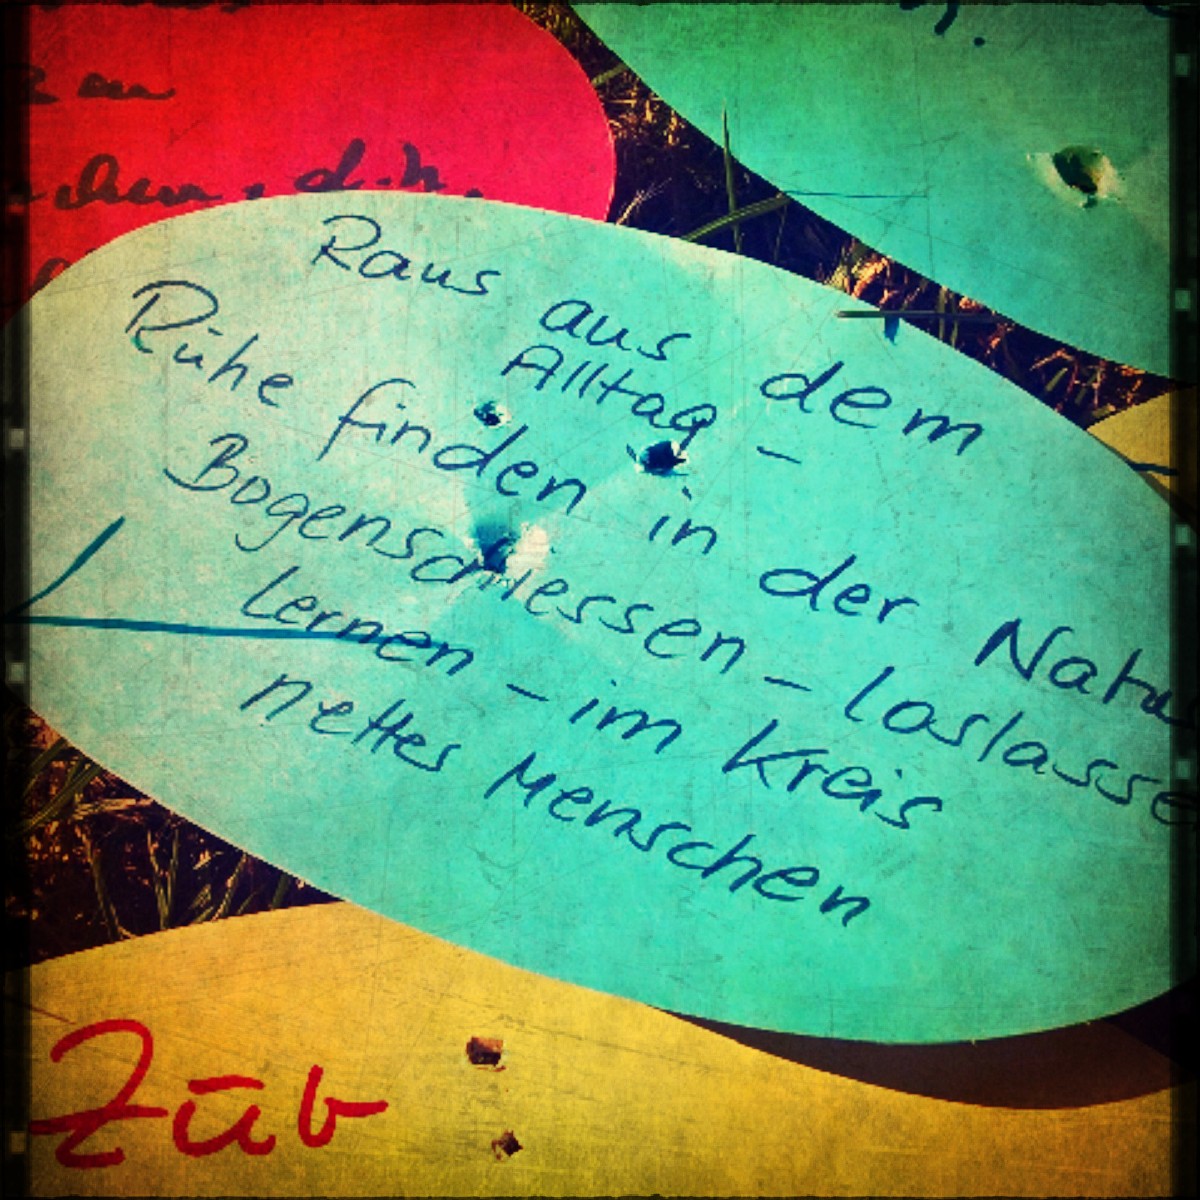 d.h.
Raus aus dem
Alltag –
Ruhe finden in der Natu
Bogenschiessen – loslasse
Lernen – im Kreis
nettes Menschen
Züb